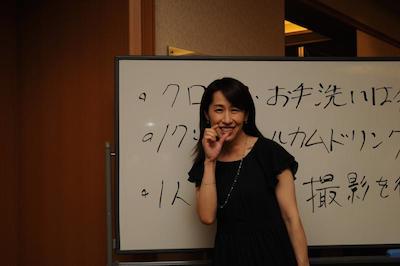 クロ お手洗いは
ルカムドリンク
1人 撮影を